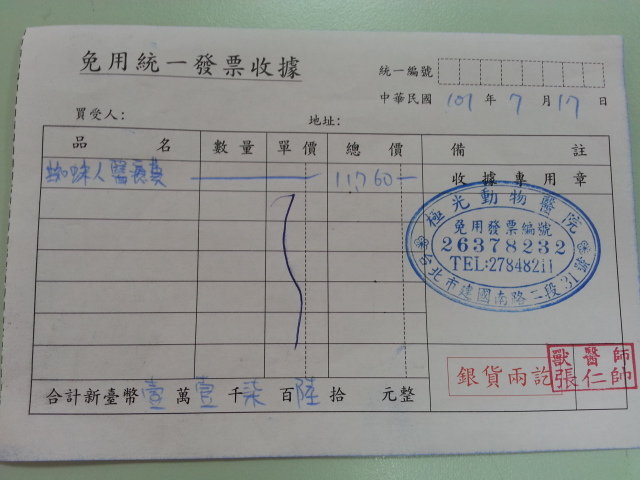 免用統一發票收據
統一編號
中華民國 101 年 7 月 17 日
買受人： 地址：
品名 數量 單價 總價 備註
蜘蛛人醫療費 11760
收據專用章
極光動物醫院
免用發票編號
26378232
TEL:27848211
台北市建國南路二段31號
銀貨兩訖
獸醫師
張仁帥
合計新臺幣壹萬壹千柒百陸拾 元整